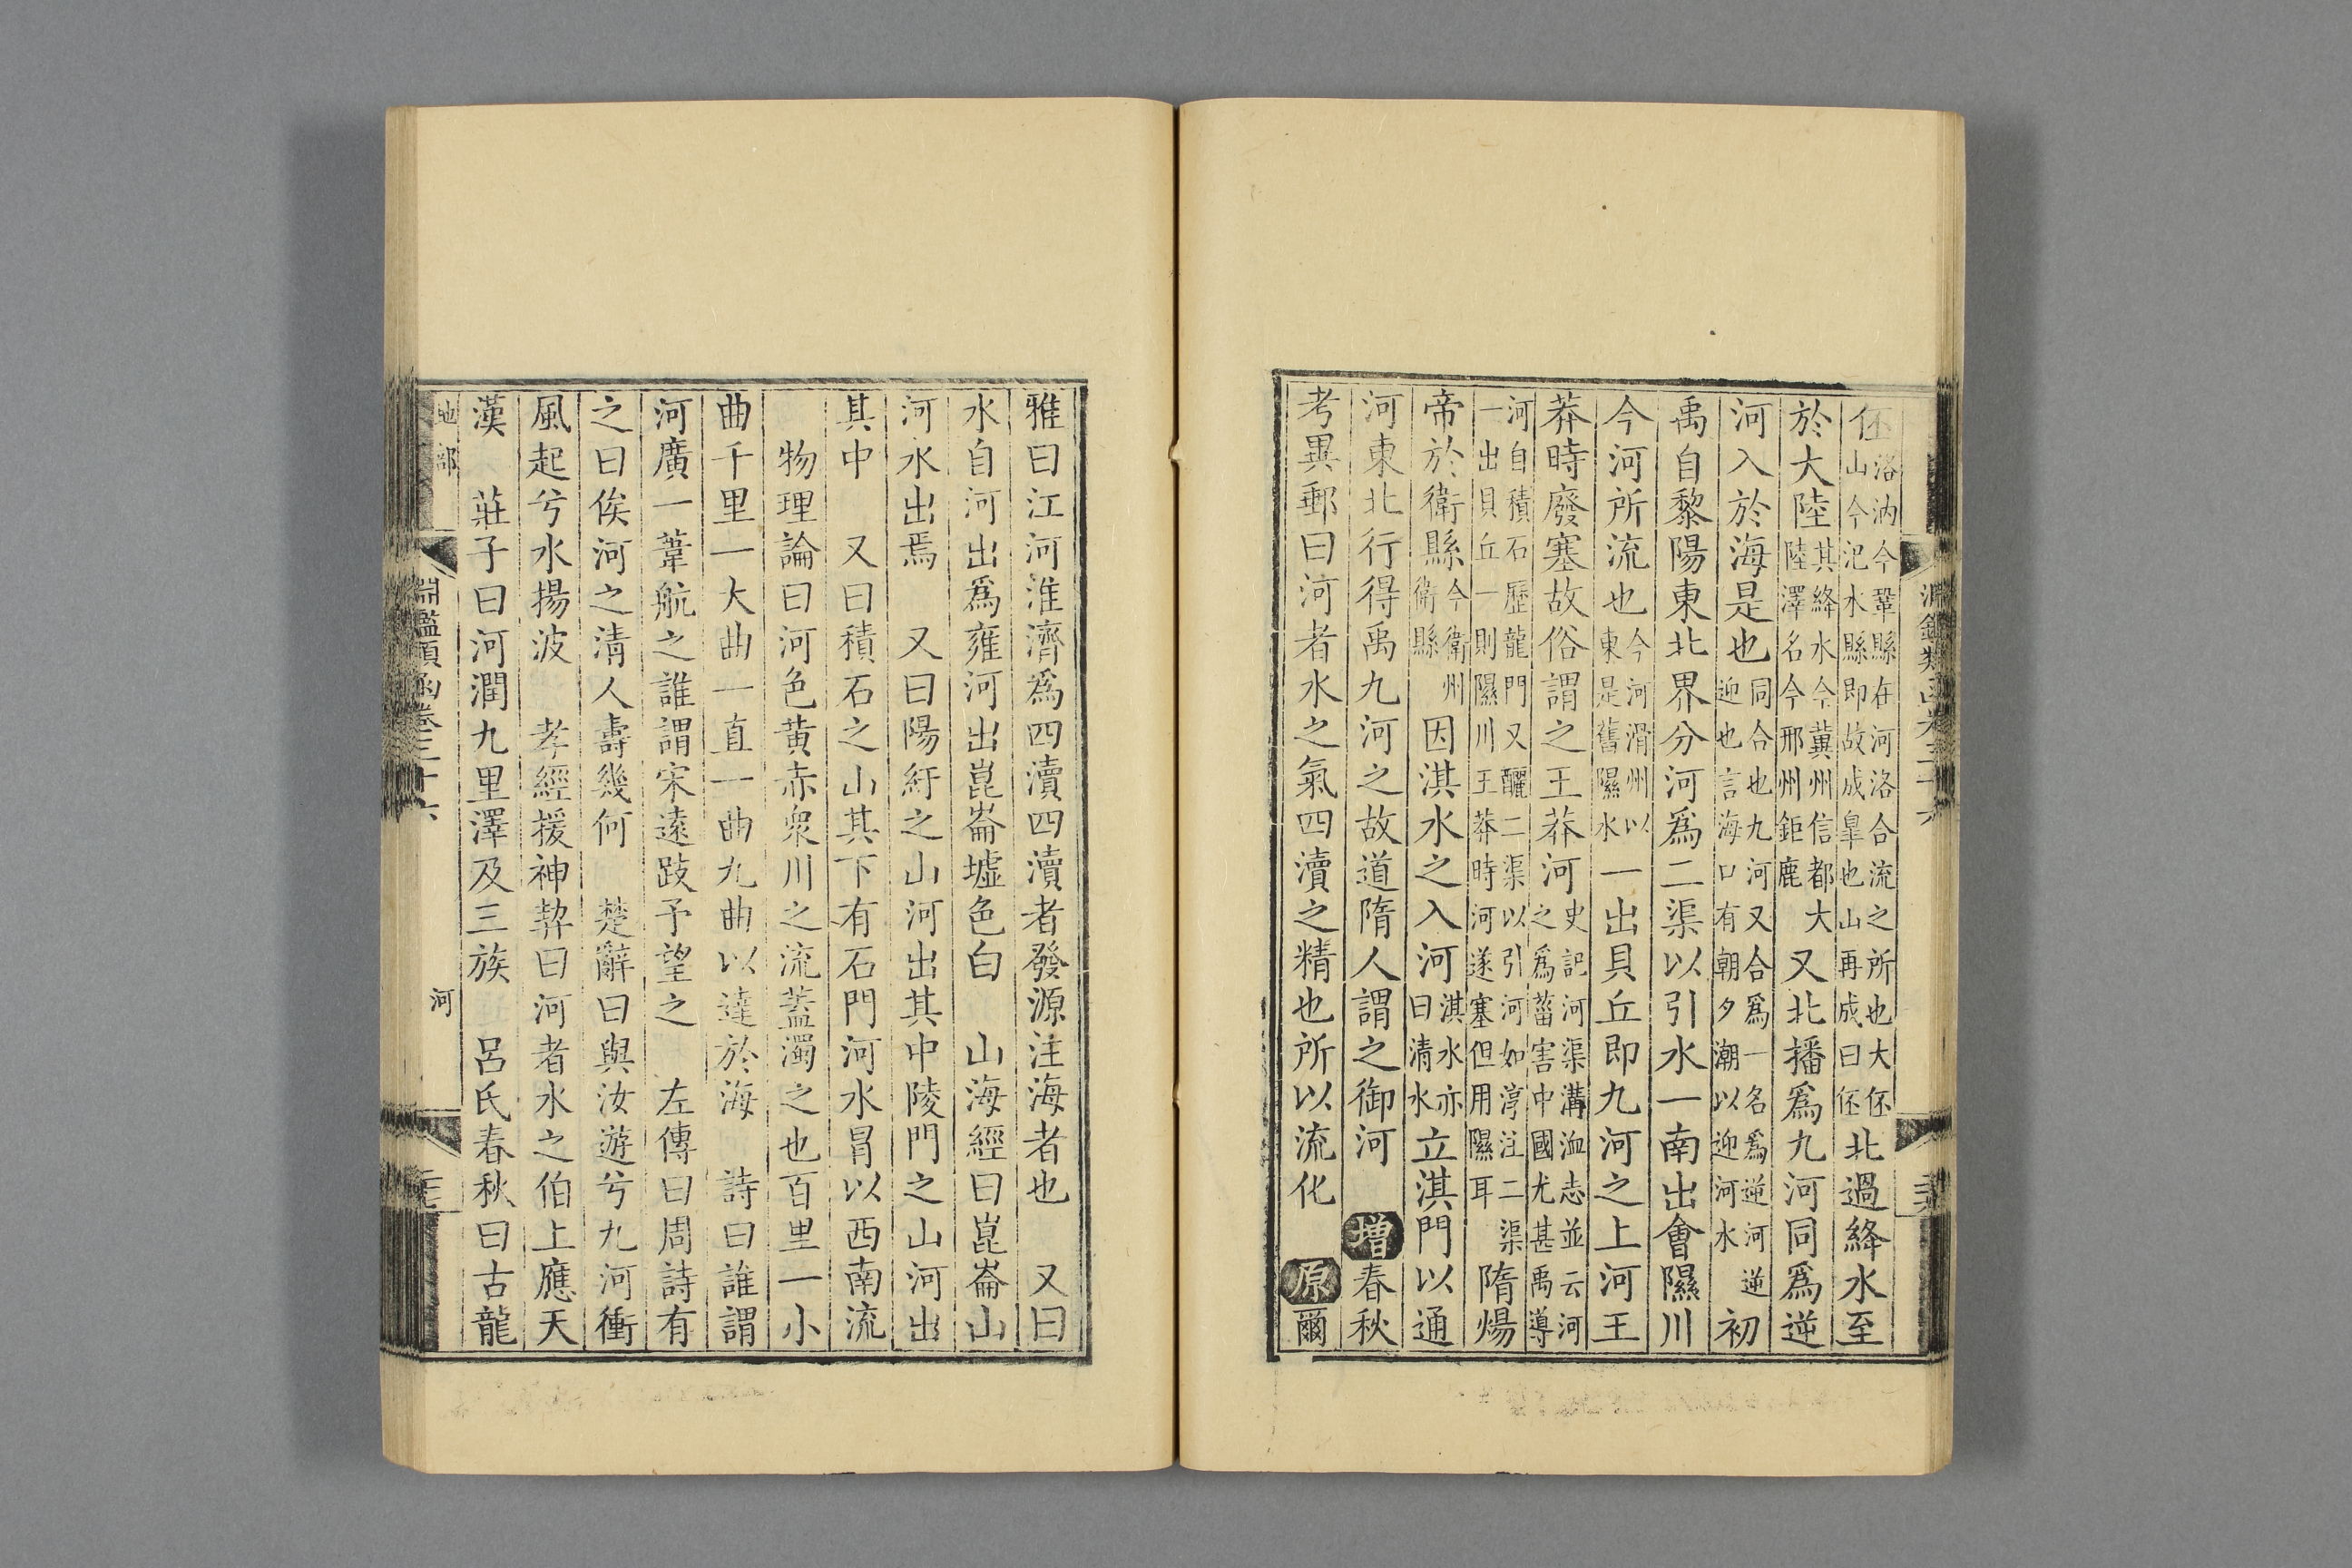 伾洛汭今鞏縣在河洛合流之所也大伾山今汜水縣即故成皐也山再成曰伾北過絳水至
於大陸其絳水今冀州信都大陸澤名今邢州鉅鹿又北播爲九河同爲逆
河入於海是也同合也九河又合爲一名爲逆河逆迎也言海口有朝夕潮以迎河水初
禹自黎陽東北界分河爲二渠以引水一南出會隰川
今河所流也今河滑州以東是舊隰水一出貝丘即九河之上河王
莽時廢塞故俗謂之王莽河史記河渠溝洫志並云河之爲菑害中國尤甚禹導
河自積石歷龍門又釃二渠以引河如淳注二渠一出貝丘一則隰川王莽時河遂塞但用隰耳隋煬
帝於衛縣今衛州衛縣因淇水之入河淇水亦曰清水立淇門以通
河東北行得禹九河之故道隋人謂之御河 增春秋
考異郵曰河者水之氣四瀆之精也所以流化 原爾
雅曰江河淮濟爲四瀆四瀆者發源注海者也 又曰
水自河出爲雍河出崑崙墟色白 山海經曰崑崙山
河水出焉 又曰陽紆之山河出其中陵門之山河出
其中 又曰積石之山其下有石門河水冒以西南流
物理論曰河色黃赤衆川之流蓋濁之也百里一小
曲千里一大曲一直一曲九曲以達於海 詩曰誰謂
河廣一葦航之誰謂宋遠跂予望之 左傳曰周詩有
之曰俟河之清人壽幾何 楚辭曰與汝遊兮九河衝
風起兮水揚波 孝經援神契曰河者水之伯上應天
漢 莊子曰河潤九里澤及三族 呂氏春秋曰古龍
地部
淵鑑類函卷三十六
河